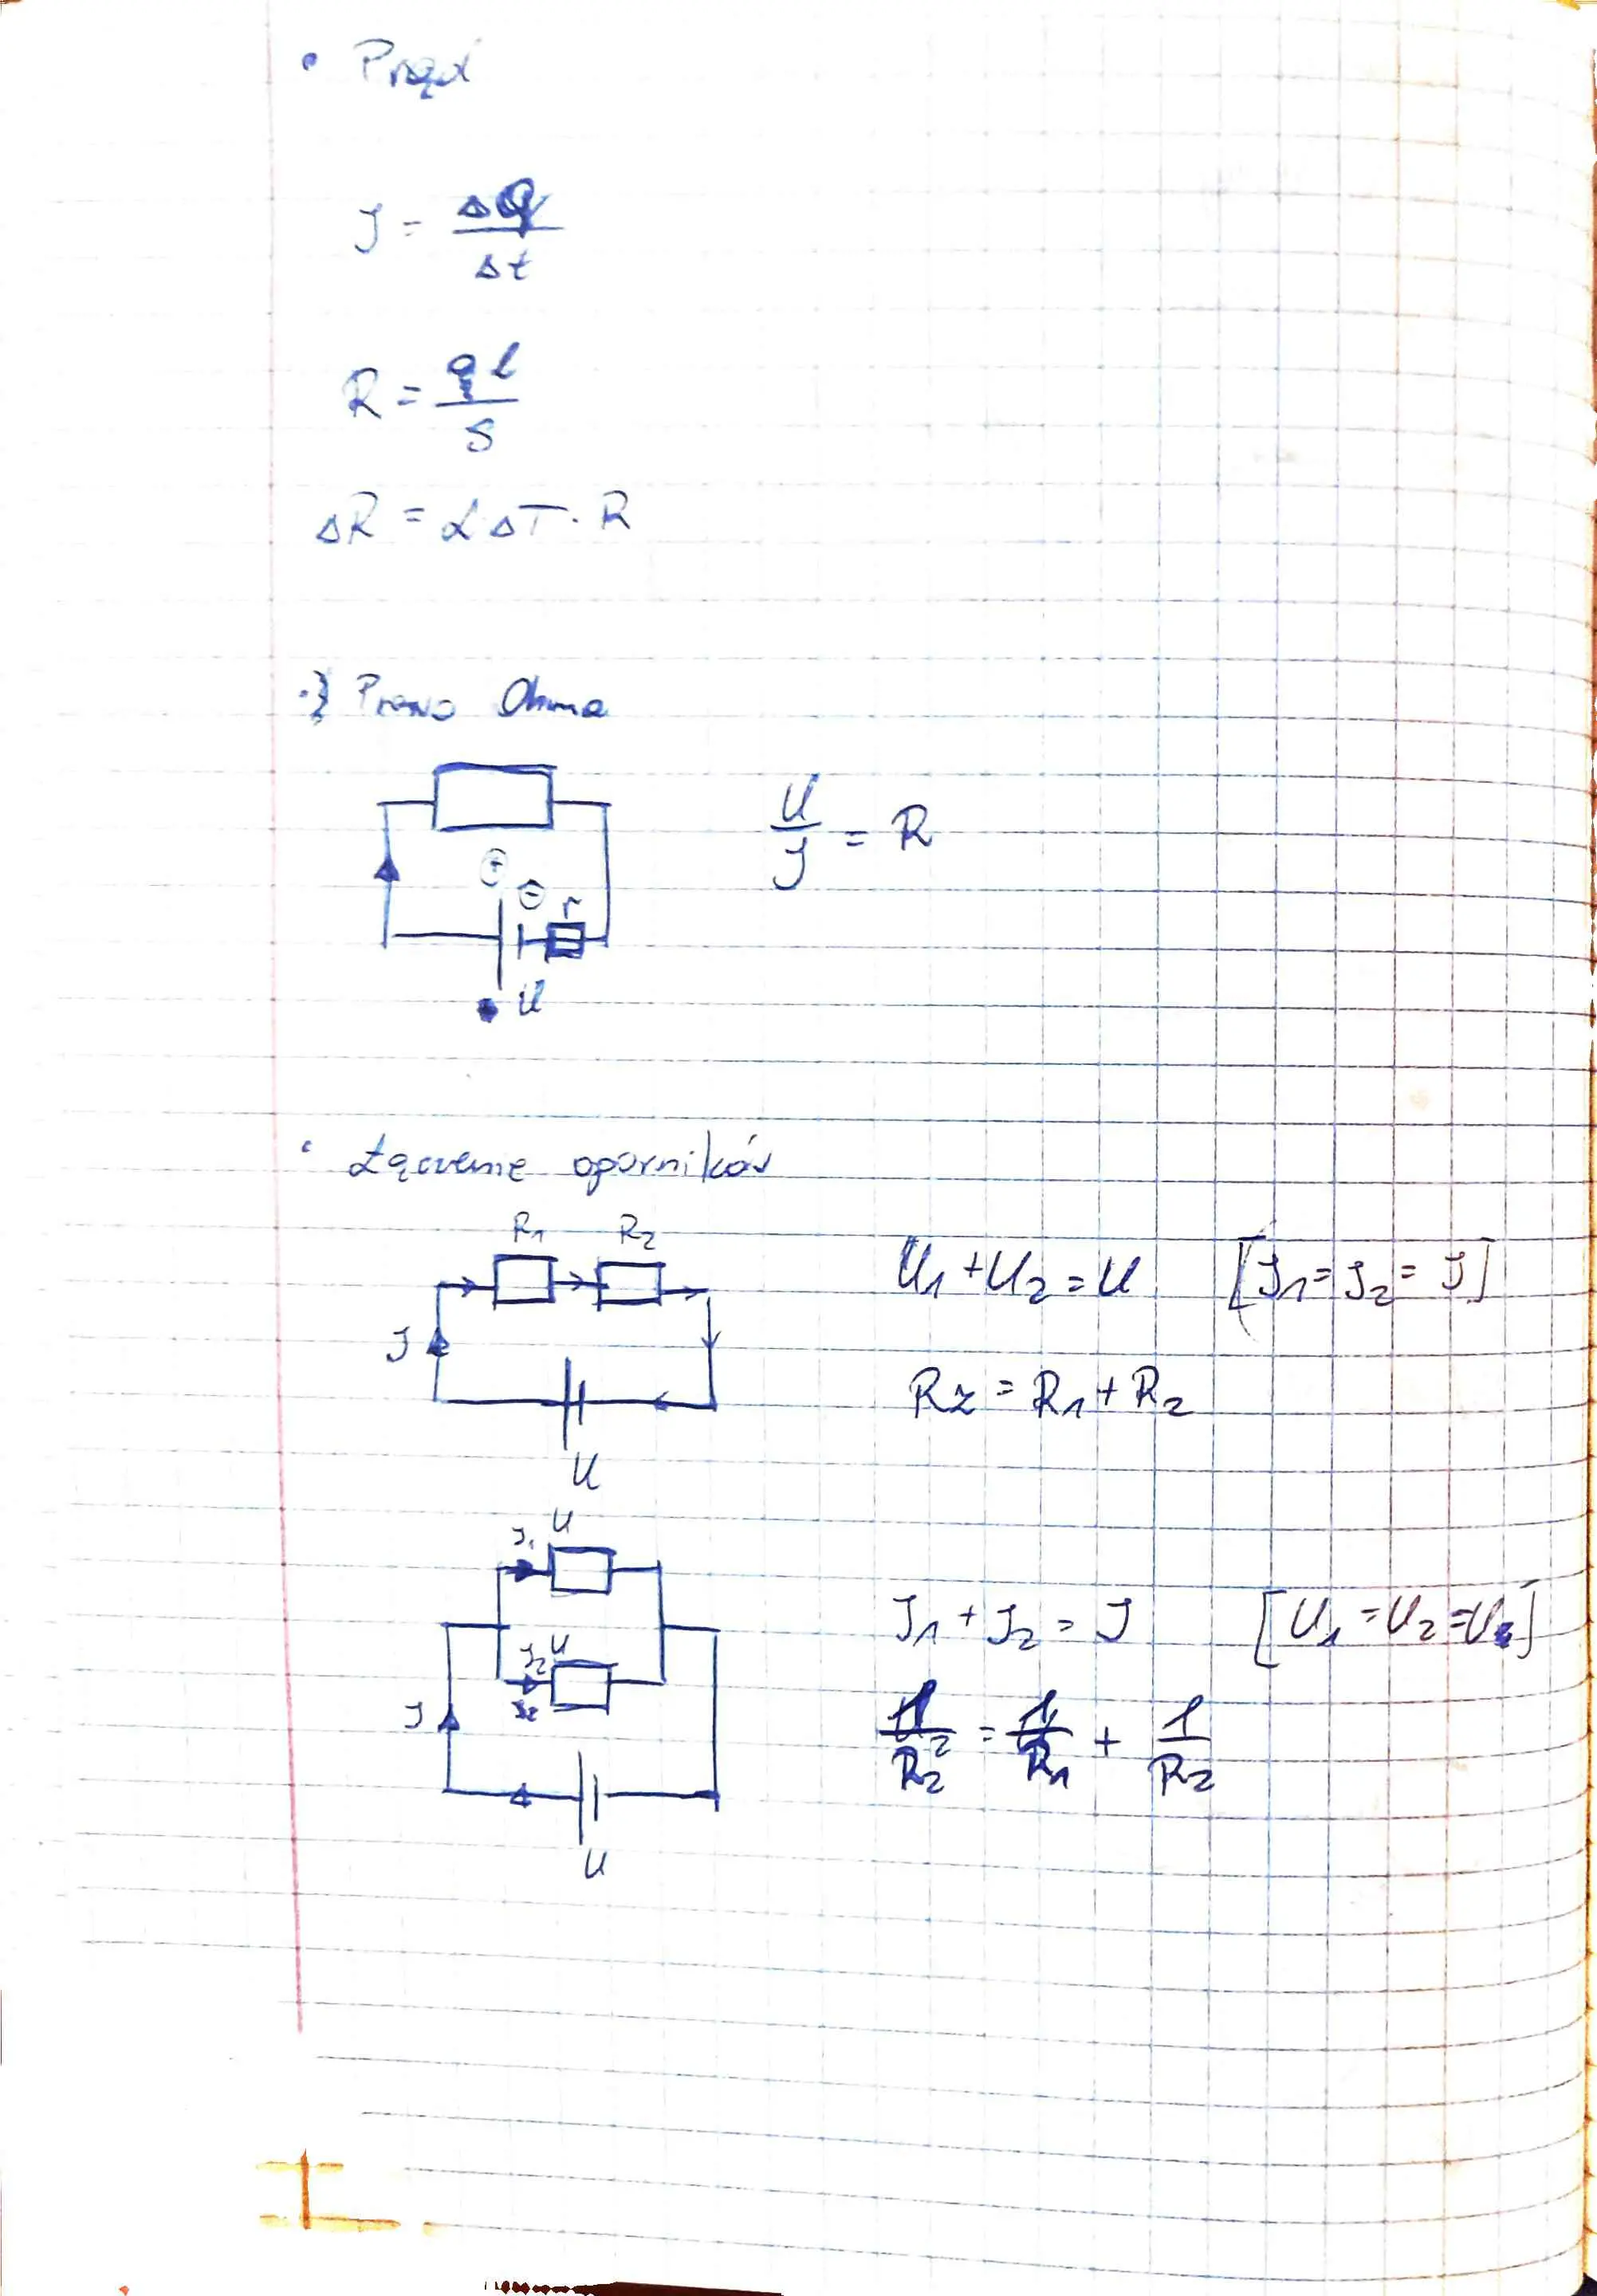 • Prąd
J = ΔQ / Δt
R = ρl / S
ΔR = αΔT · R
·} Prawo Ohma
U / J = R
+
−
r
U
• Łączenie oporników
R1 R2
U1 + U2 = U [J1 = J2 = J]
J
Rz = R1 + R2
U
J1 U
J1 + J2 = J [U1 = U2 = U]
J2 U
J
1 / Rz = 1 / R1 + 1 / R2
U
I